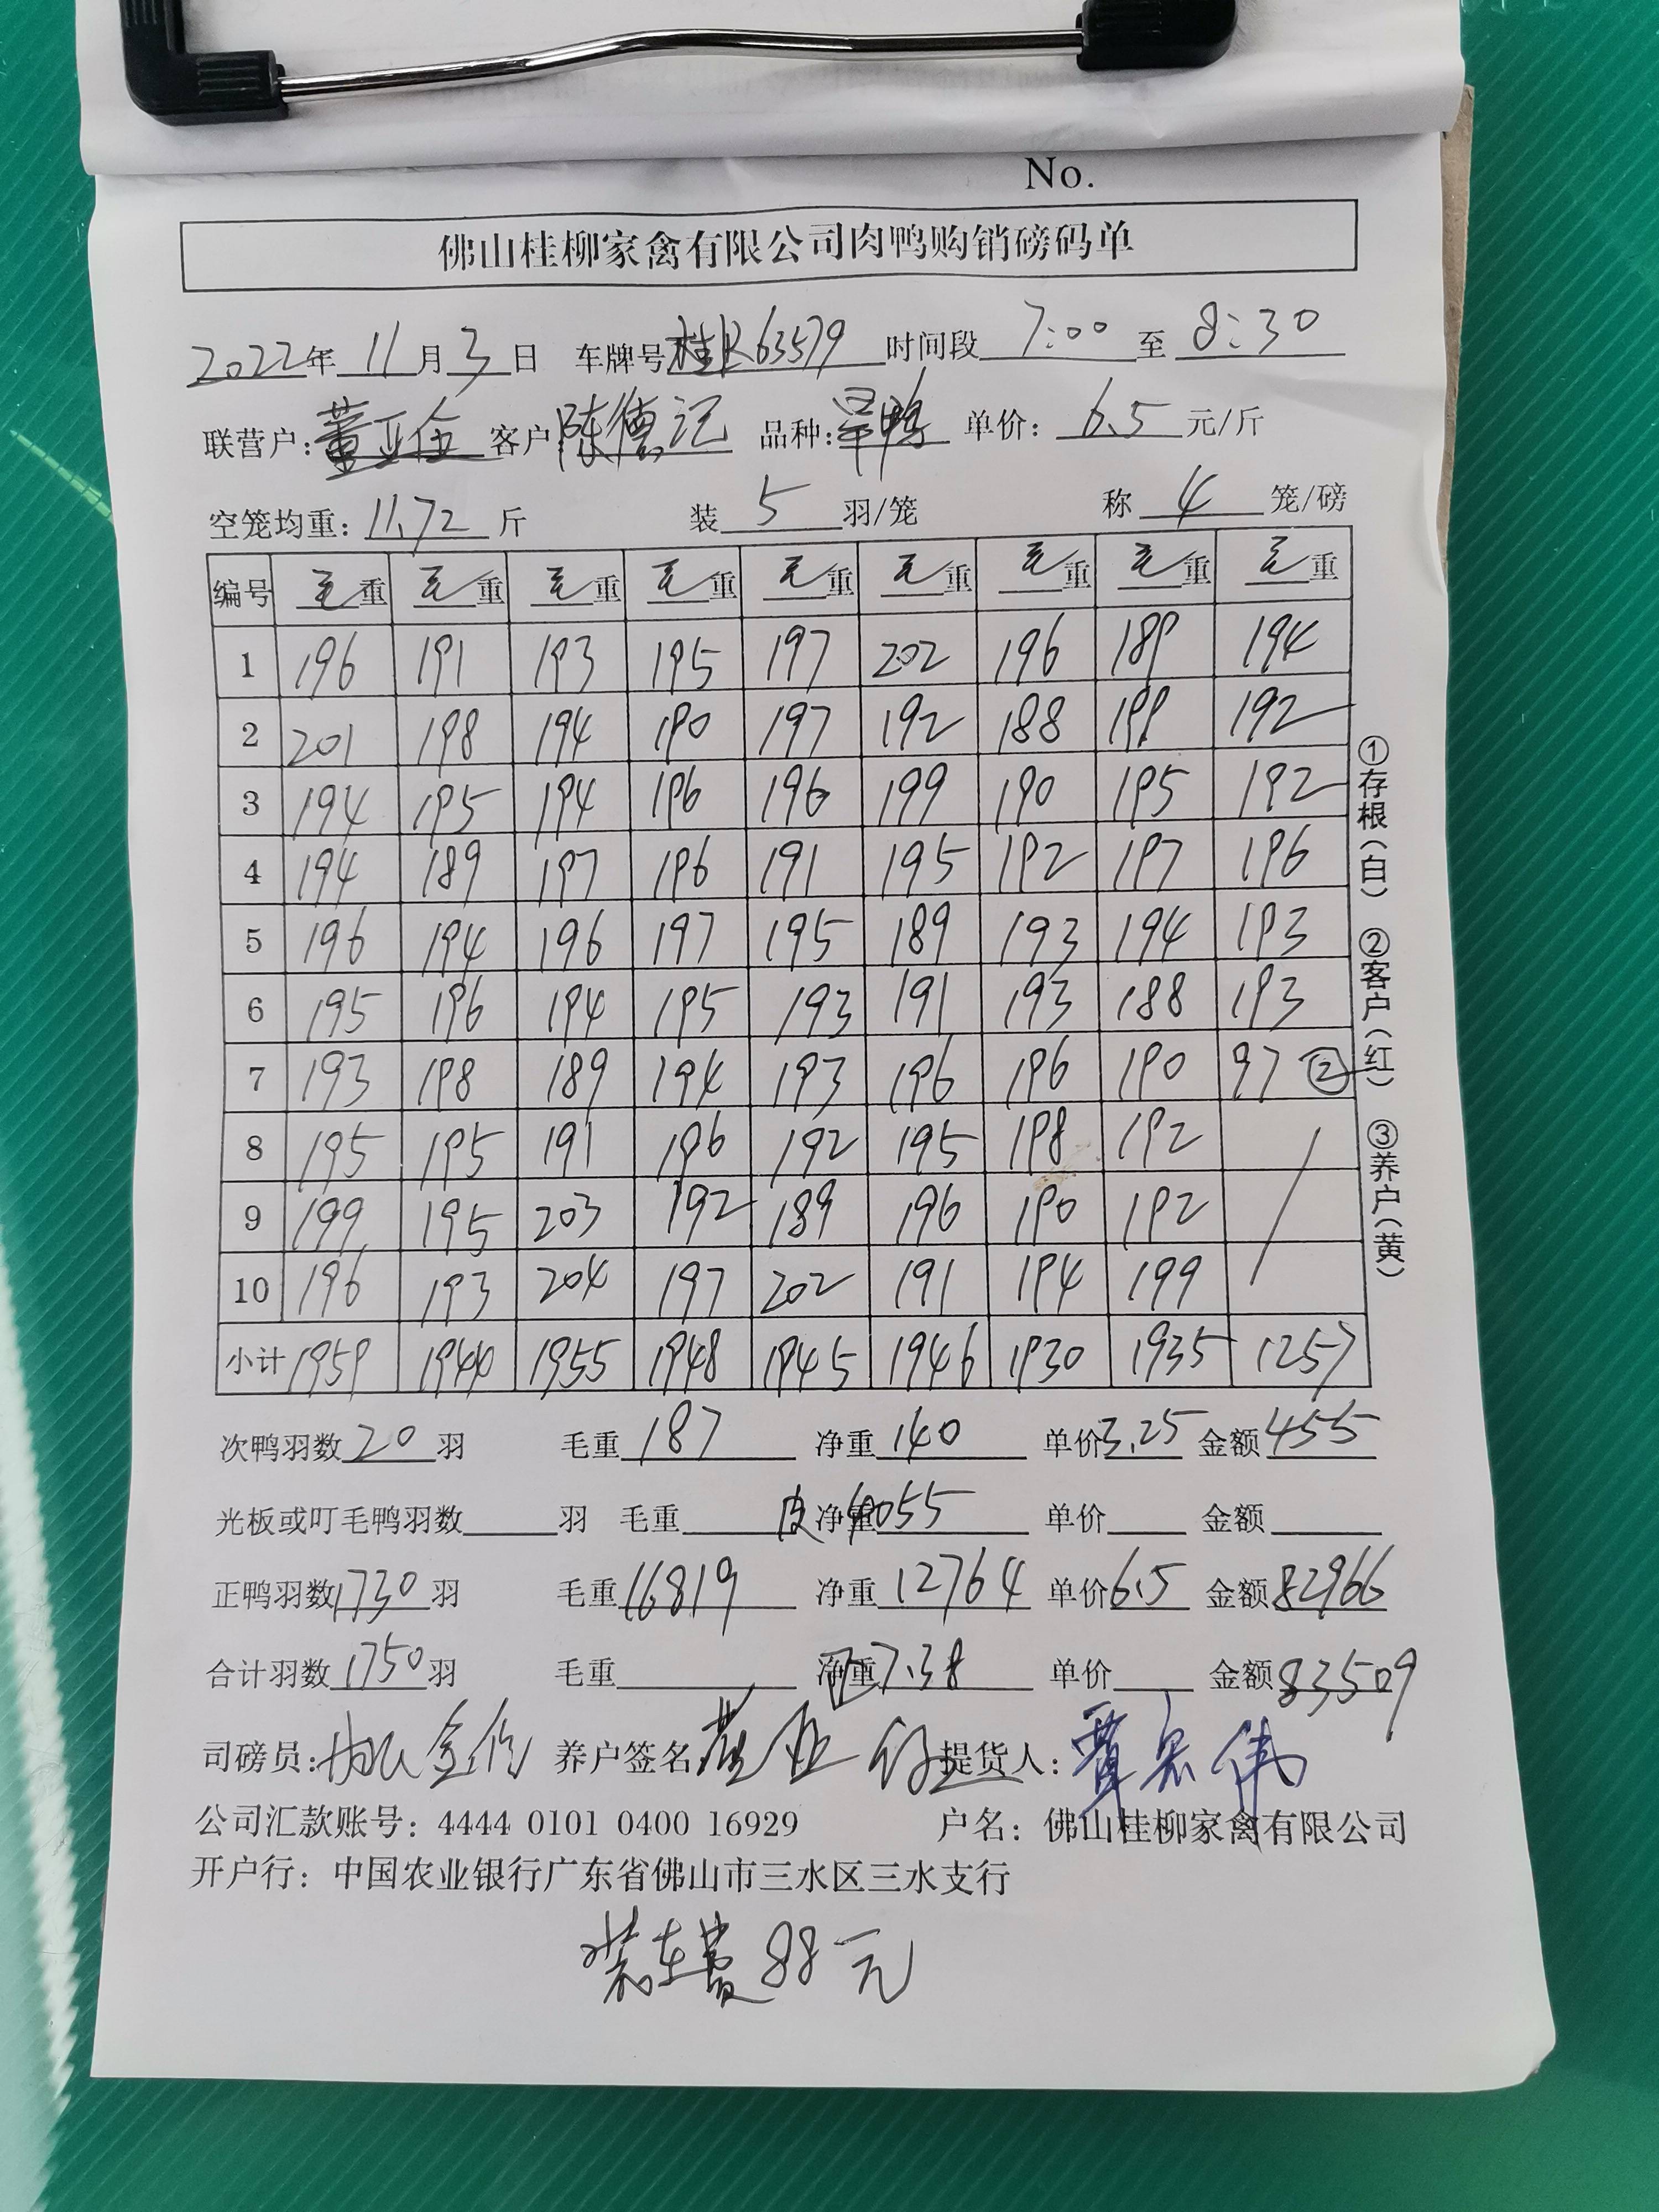 No.
佛山桂柳家禽有限公司肉鸭购销磅码单
2022年 11月 3日 车牌号 桂R63579 时间段 7:00 至 8:30
联营户: 董亚金 客户 陈德记 品种: 鸭 单价: 6.5 元/斤
空笼均重: 11.72 斤 装 5 羽/笼 称 4 笼/磅
编号 毛重 毛重 毛重 毛重 毛重 毛重 毛重 毛重 毛重
1 196 191 193 195 197 202 196 189 194
2 201 198 194 190 197 192 188 199 192
3 194 195 194 196 196 199 190 195 192
4 194 189 197 196 191 195 192 197 196
5 196 194 196 197 195 189 193 194 193
6 195 196 194 195 193 191 193 188 193
7 193 198 189 194 193 196 196 190 97 ②
8 195 195 191 196 192 195 198 192
9 199 195 203 192 189 196 190 192
10 196 193 204 197 202 191 194 199
小计 1959 1944 1955 1948 1945 1946 1930 1935 1257
①存根(白) ②客户(红) ③养户(黄)
次鸭羽数 20 羽 毛重 187 净重 140 单价 3.25 金额 455
光板或叮毛鸭羽数 羽 毛重 皮 净重 4055 单价 金额
正鸭羽数 1730 羽 毛重 16819 净重 12764 单价 6.5 金额 82966
合计羽数 1750 羽 毛重 净重 7.38 单价 金额 83509
司磅员: 养户签名 提货人: 覃宏伟
公司汇款账号: 4444 0101 0400 16929 户名: 佛山桂柳家禽有限公司
开户行: 中国农业银行广东省佛山市三水区三水支行
装车费 88 元